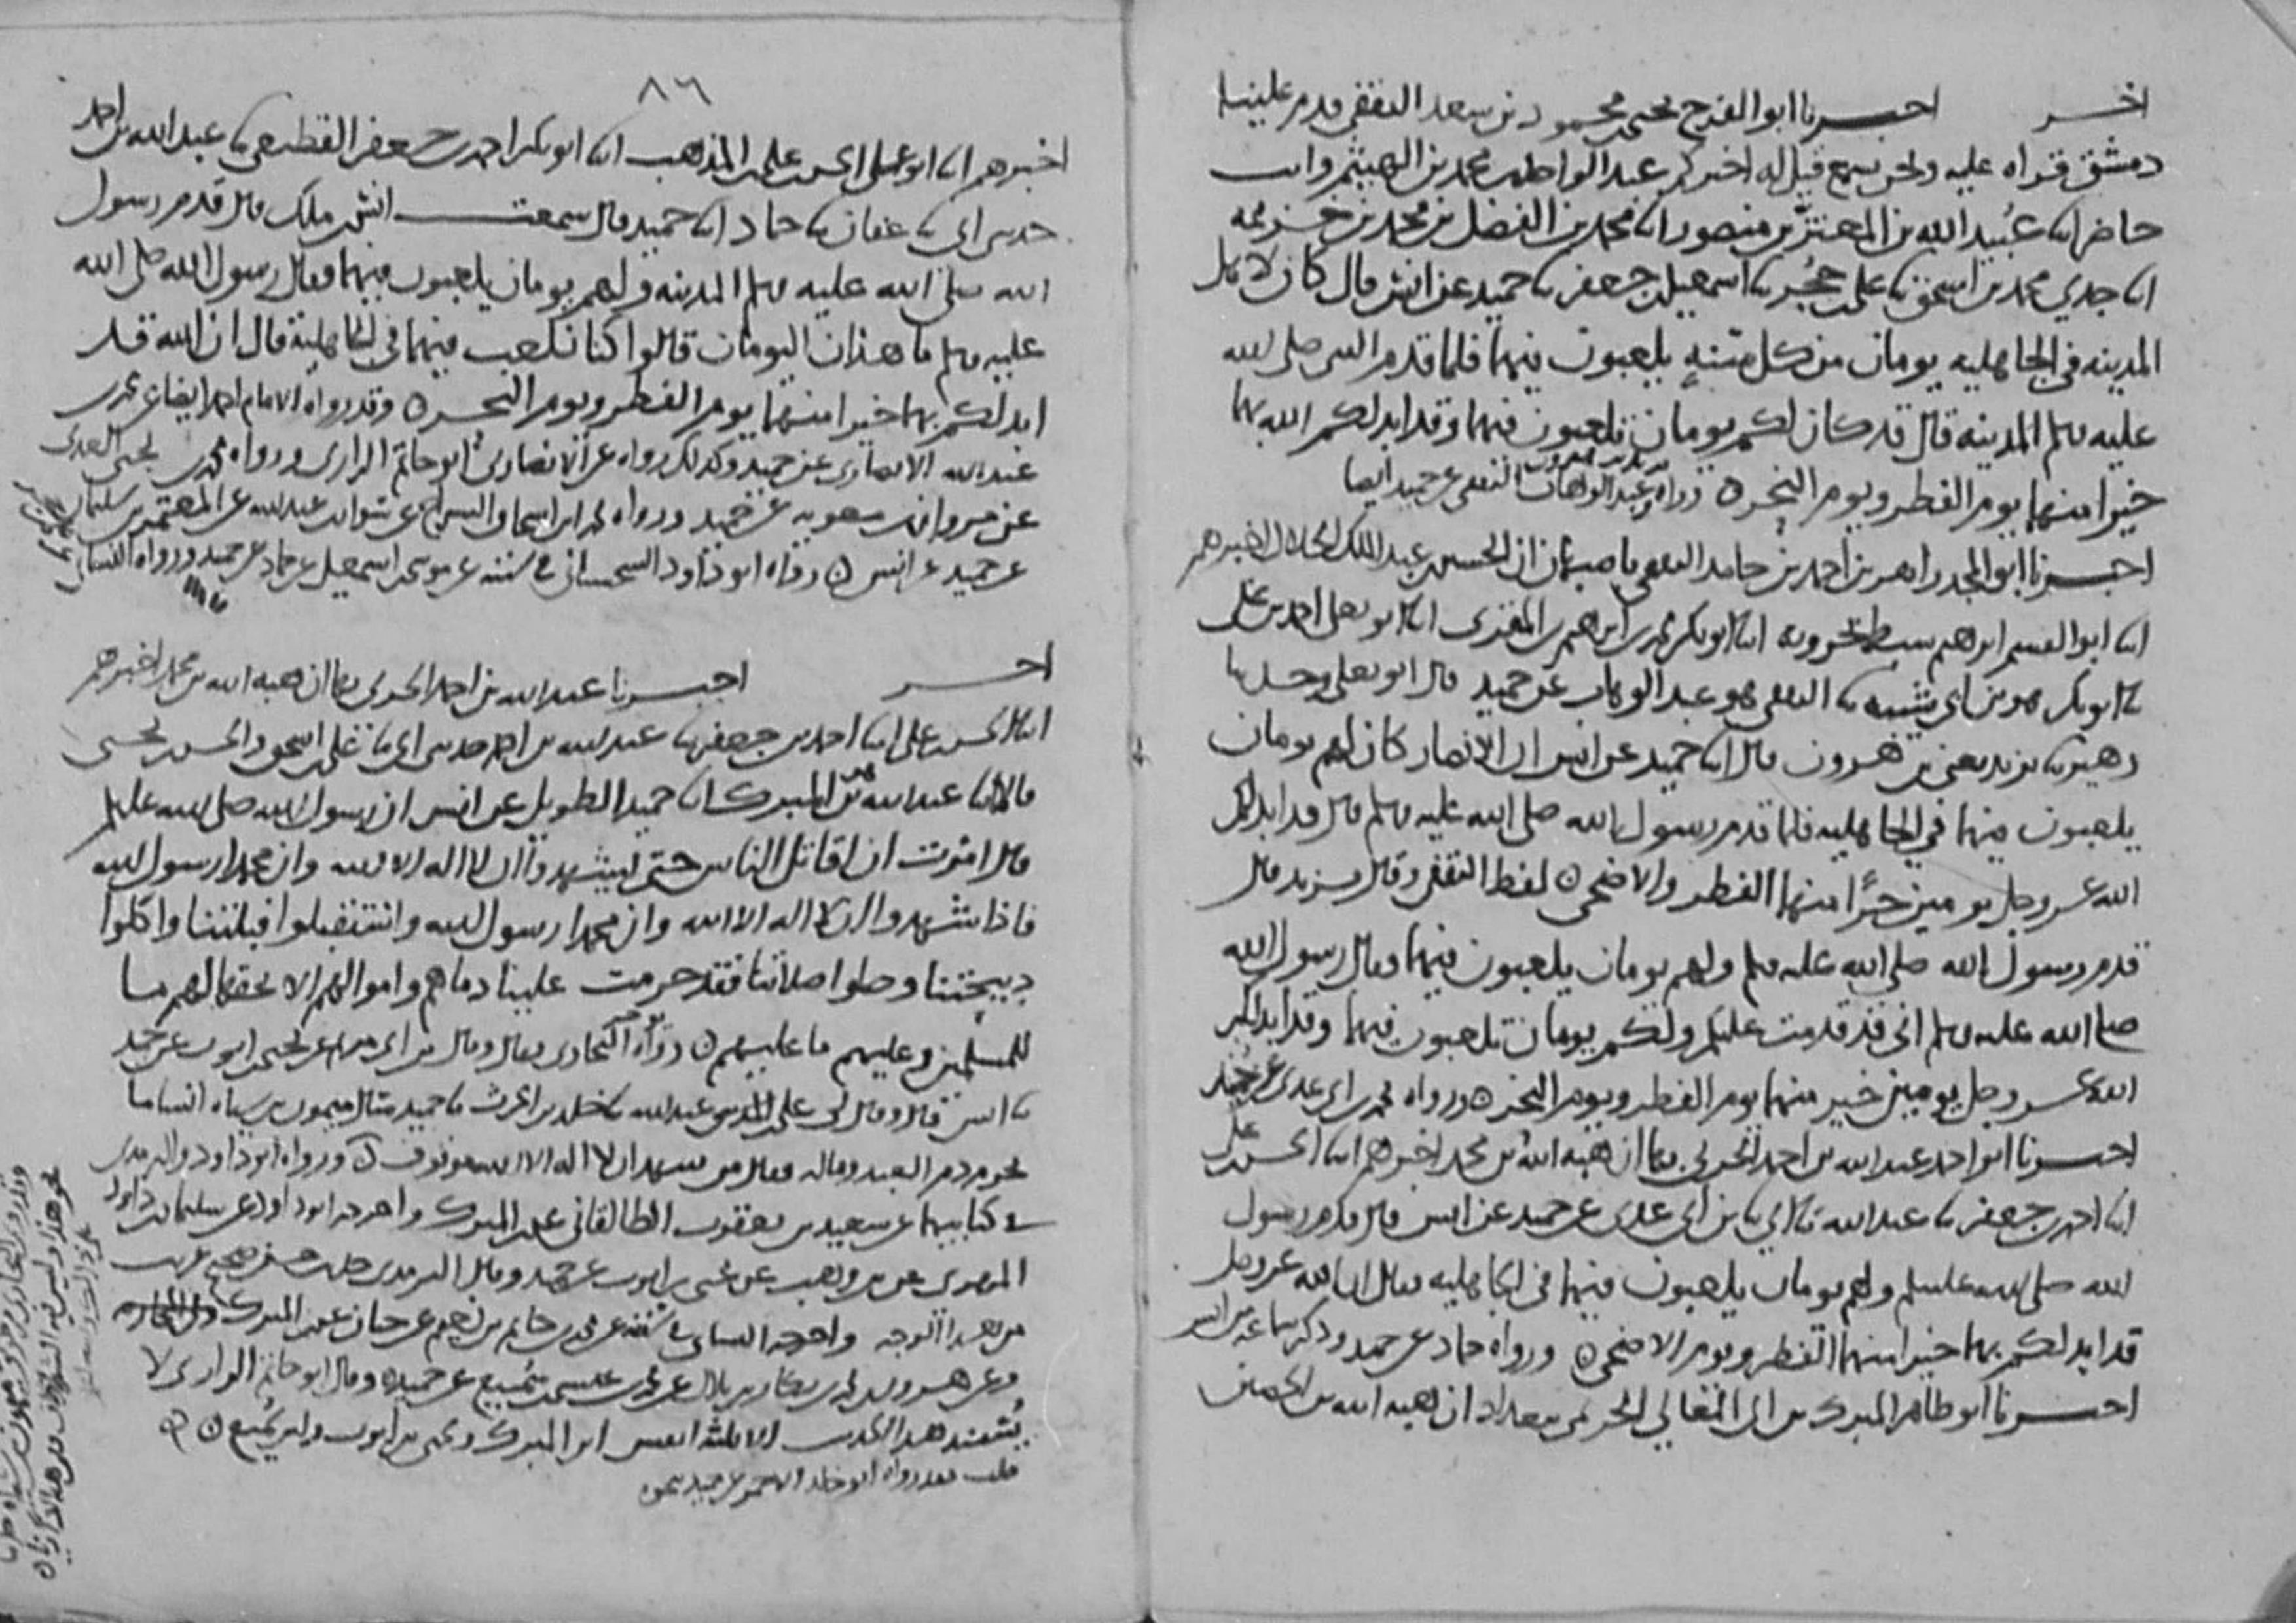 اخر اخبرنا ابو الفرج يحيى بن محمود بن سعد الثقفي قدم علينا
دمشق قراه عليه ونحن نسمع قيل له اخبركم عبد الواحد بن محمد بن الهيثم وانت
حاضر انا عبيد الله بن المعتز بن منصور انا محمد بن الفضل بن محمد بن خزيمه
انا جدي محمد بن اسحق نا علي بن حجر نا اسمعيل بن جعفر نا حميد عن انس قال كان لاهل
المدينه في الجاهليه يومان من كل سنة يلعبون فيهما فلما قدم النبي صلى الله
عليه وسلم المدينه قال قد كان لكم يومان تلعبون فيهما وقد ابدلكم الله بهما
خيرا منهما يوم الفطر ويوم النحر ه ورواه عبد الوهاب الثقفي عن حميد ايضا
اخبرنا ابو المجد زاهر بن احمد بن حامد الثقفي باصبهان ان الحسين بن عبد الملك الخلال اخبرهم
انا ابو القسم ابرهيم سبط بحرويه انا ابو بكر محمد بن ابرهيم بن المقرئ انا ابو يعلى احمد بن علي
نا ابو بكر هو بن ابي شيبه نا الثقفي هو عبد الوهاب عن حميد قال ابو يعلى وحدثنا
زهير نا يزيد يعني بن هرون قال انا حميد عن انس ان الانصار كان لهم يومان
يلعبون فيهما في الجاهليه فلما قدم رسول الله صلى الله عليه وسلم قال قد ابدلكم
الله عز وجل يومين خيرا منهما الفطر والاضحى ه لفظ الثقفي وقال يزيد قال
قدم رسول الله صلى الله عليه وسلم ولهم يومان يلعبون فيهما وقال رسول الله
صلى الله عليه وسلم اني قد قدمت عليكم ولكم يومان تلعبون فيهما وقد ابدلكم
الله عز وجل يومين خير منهما يوم الفطر ويوم النحر ه ورواه محمد بن ابي عدي عن حميد
اخبرنا ابو احمد عبد الله بن احمد الحربي بها ان هبه الله بن محمد اخبرهم انا الحسن بن علي
انا احمد بن جعفر نا عبد الله نا ابي نا بن ابي عدي عن حميد عن انس قال قدم رسول
الله صلى الله عليه وسلم ولهم يومان يلعبون فيهما في الجاهليه فقال ان الله عز وجل
قد ابدلكم بهما خيرا منهما الفطر ويوم الاضحى ه ورواه حماد عن حميد وذكر سماعه من انس
اخبرنا ابو طاهر المبرك بن ابي المعالي الحريمي ببغداد ان هبه الله بن الحصين
٨٦
اخبرهم انا ابو علي الحسن بن علي بن المذهب انا ابو بكر احمد بن جعفر القطيعي نا عبد الله بن احمد
حدثني ابي نا عفان نا حماد انا حميد قال سمعت انس بن ملك قال قدم رسول
الله صلى الله عليه وسلم المدينه ولهم يومان يلعبون فيهما فقال رسول الله صلى الله
عليه وسلم ما هذان اليومان قالوا كنا نلعب فيهما في الجاهلية قال ان الله قد
ابدلكم بهما خيرا منهما يوم الفطر ويوم النحر ه وقد رواه الامام احمد ايضا عن محمد بن
عبد الله الانصاري عن حميد وكذلك رواه عن الانصاري ابو حاتم الرازي ورواه محمد بن يحيى العدني
عن مروان بن معويه عن حميد ورواه محمد بن اسحاق السراج عن سوار بن عبد الله عن المعتمر بن سليمان
عن حميد عن انس ه رواه ابو داود السجستاني في سننه عن موسى بن اسمعيل عن حماد عن حميد ورواه النسائي
اخر اخبرنا عبد الله بن احمد الحربي بها ان هبه الله بن محمد اخبرهم
انا الحسن بن علي انا احمد بن جعفر نا عبد الله بن احمد حدثني ابي نا علي بن اسحق والحسن بن يحيى
قالا انا عبد الله هو بن المبرك انا حميد الطويل عن انس ان رسول الله صلى الله عليه وسلم
قال امرت ان اقاتل الناس حتى يشهدوا ان لا اله الا الله وان محمدا رسول الله
فاذا شهدوا ان لا اله الا الله وان محمدا رسول الله واستقبلوا قبلتنا واكلوا
ذبيحتنا وصلوا صلاتنا فقد حرمت علينا دماهم واموالهم الا بحقها لهم ما
للمسلمين وعليهم ما عليهم ه رواه البخاري فقال وقال بن ابي مريم عن يحيى بن ايوب عن حميد
نا انس قال وقال لي علي بن المديني عبد الله نا خلد بن الحرث نا حميد سال ميمون بن سياه انسا ما
يحرم دم العبد وماله فقال من شهد ان لا اله الا الله موقوف ه ورواه ابو داود والترمذي
في كتابيهما عن سعيد بن يعقوب الطالقاني عن المبرك واخرجه ابو داود عن سليمان بن داود
المهري عن بن وهب عن يحيى بن ايوب عن حميد وقال الترمذي حديث حسن صحيح غريب
من هذا الوجه واخرجه النسائي عن محمد بن حاتم بن نعيم عن حبان عن المبرك
وعن هرون بن محمد بن بكار بن بلال عن محمد بن عيسى بن سميع عن حميد وقال ابو حاتم الرازي لا
يسند هذا الحديث الا ثلثه انفس ابن المبرك ويحيى بن ايوب وابن سميع ه
قلت فقد رواه ابو خالد الاحمر عن حميد نحوه